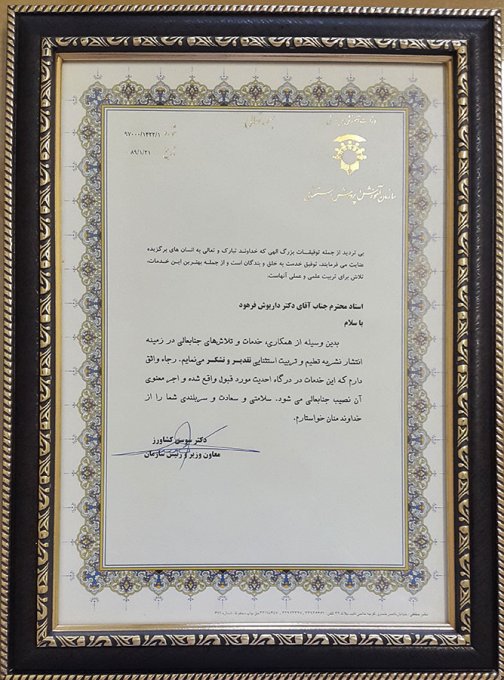 ۹۷۰۰۰/۱۴۲۲/۱
۸۹/۱/۲۱
سازمان آموزش و پرورش استثنایی
بی تردید از جمله توفیقات بزرگ الهی که خداوند تبارک و تعالی به انسان های برگزیده
عنایت می فرمایند، توفیق خدمت به خلق و بندگان است و از جمله بهترین این خدمات،
تلاش برای تربیت علمی و عملی آنهاست.
استاد محترم جناب آقای دکتر داریوش فرهود
با سلام
بدین وسیله از همکاری، خدمات و تلاش‌های جنابعالی در زمینه
انتشار نشریه تعلیم و تربیت استثنایی تقدیر و تشکر می‌نمایم. رجاء واثق
دارم که این خدمات در درگاه احدیت مورد قبول واقع شده و اجر معنوی
آن نصیب جنابعالی می شود. سلامتی و سعادت و سربلندی شما را از
خداوند منان خواستارم.
دکتر موسی کشاورز
معاون وزیر و رئیس سازمان